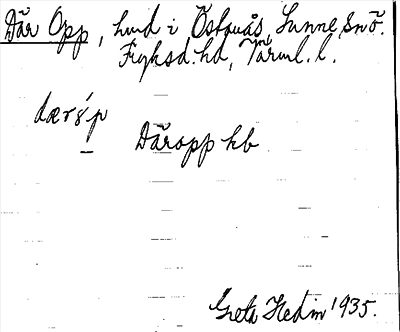 Där Opp, hmd i Östanås, Sunne, snö.
Fryksd. hd, Värml. l.
dærɞ́p
Däropp kb
Greta Hedin 1935.